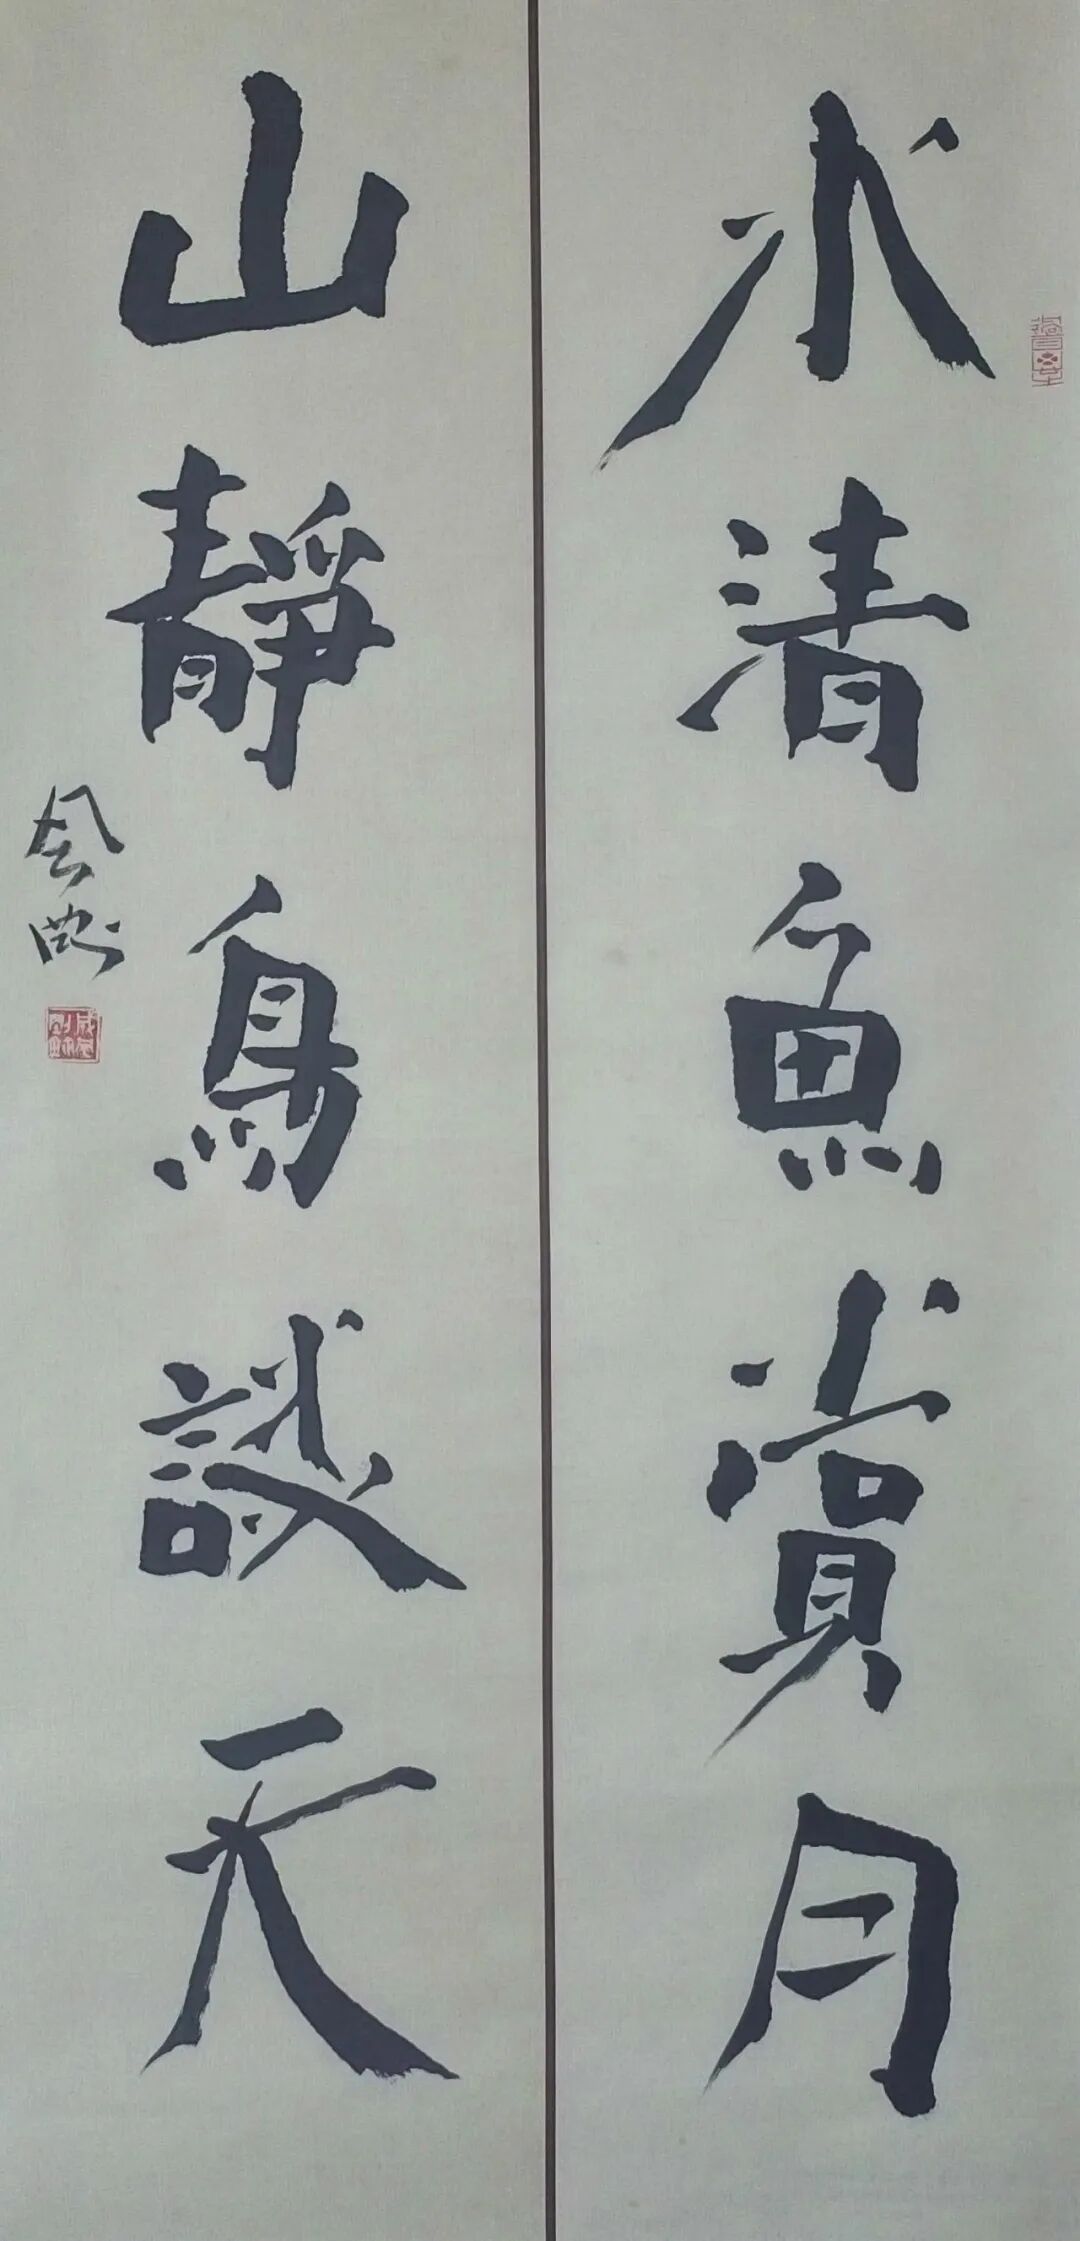 水清魚賞月
山靜鳥談天